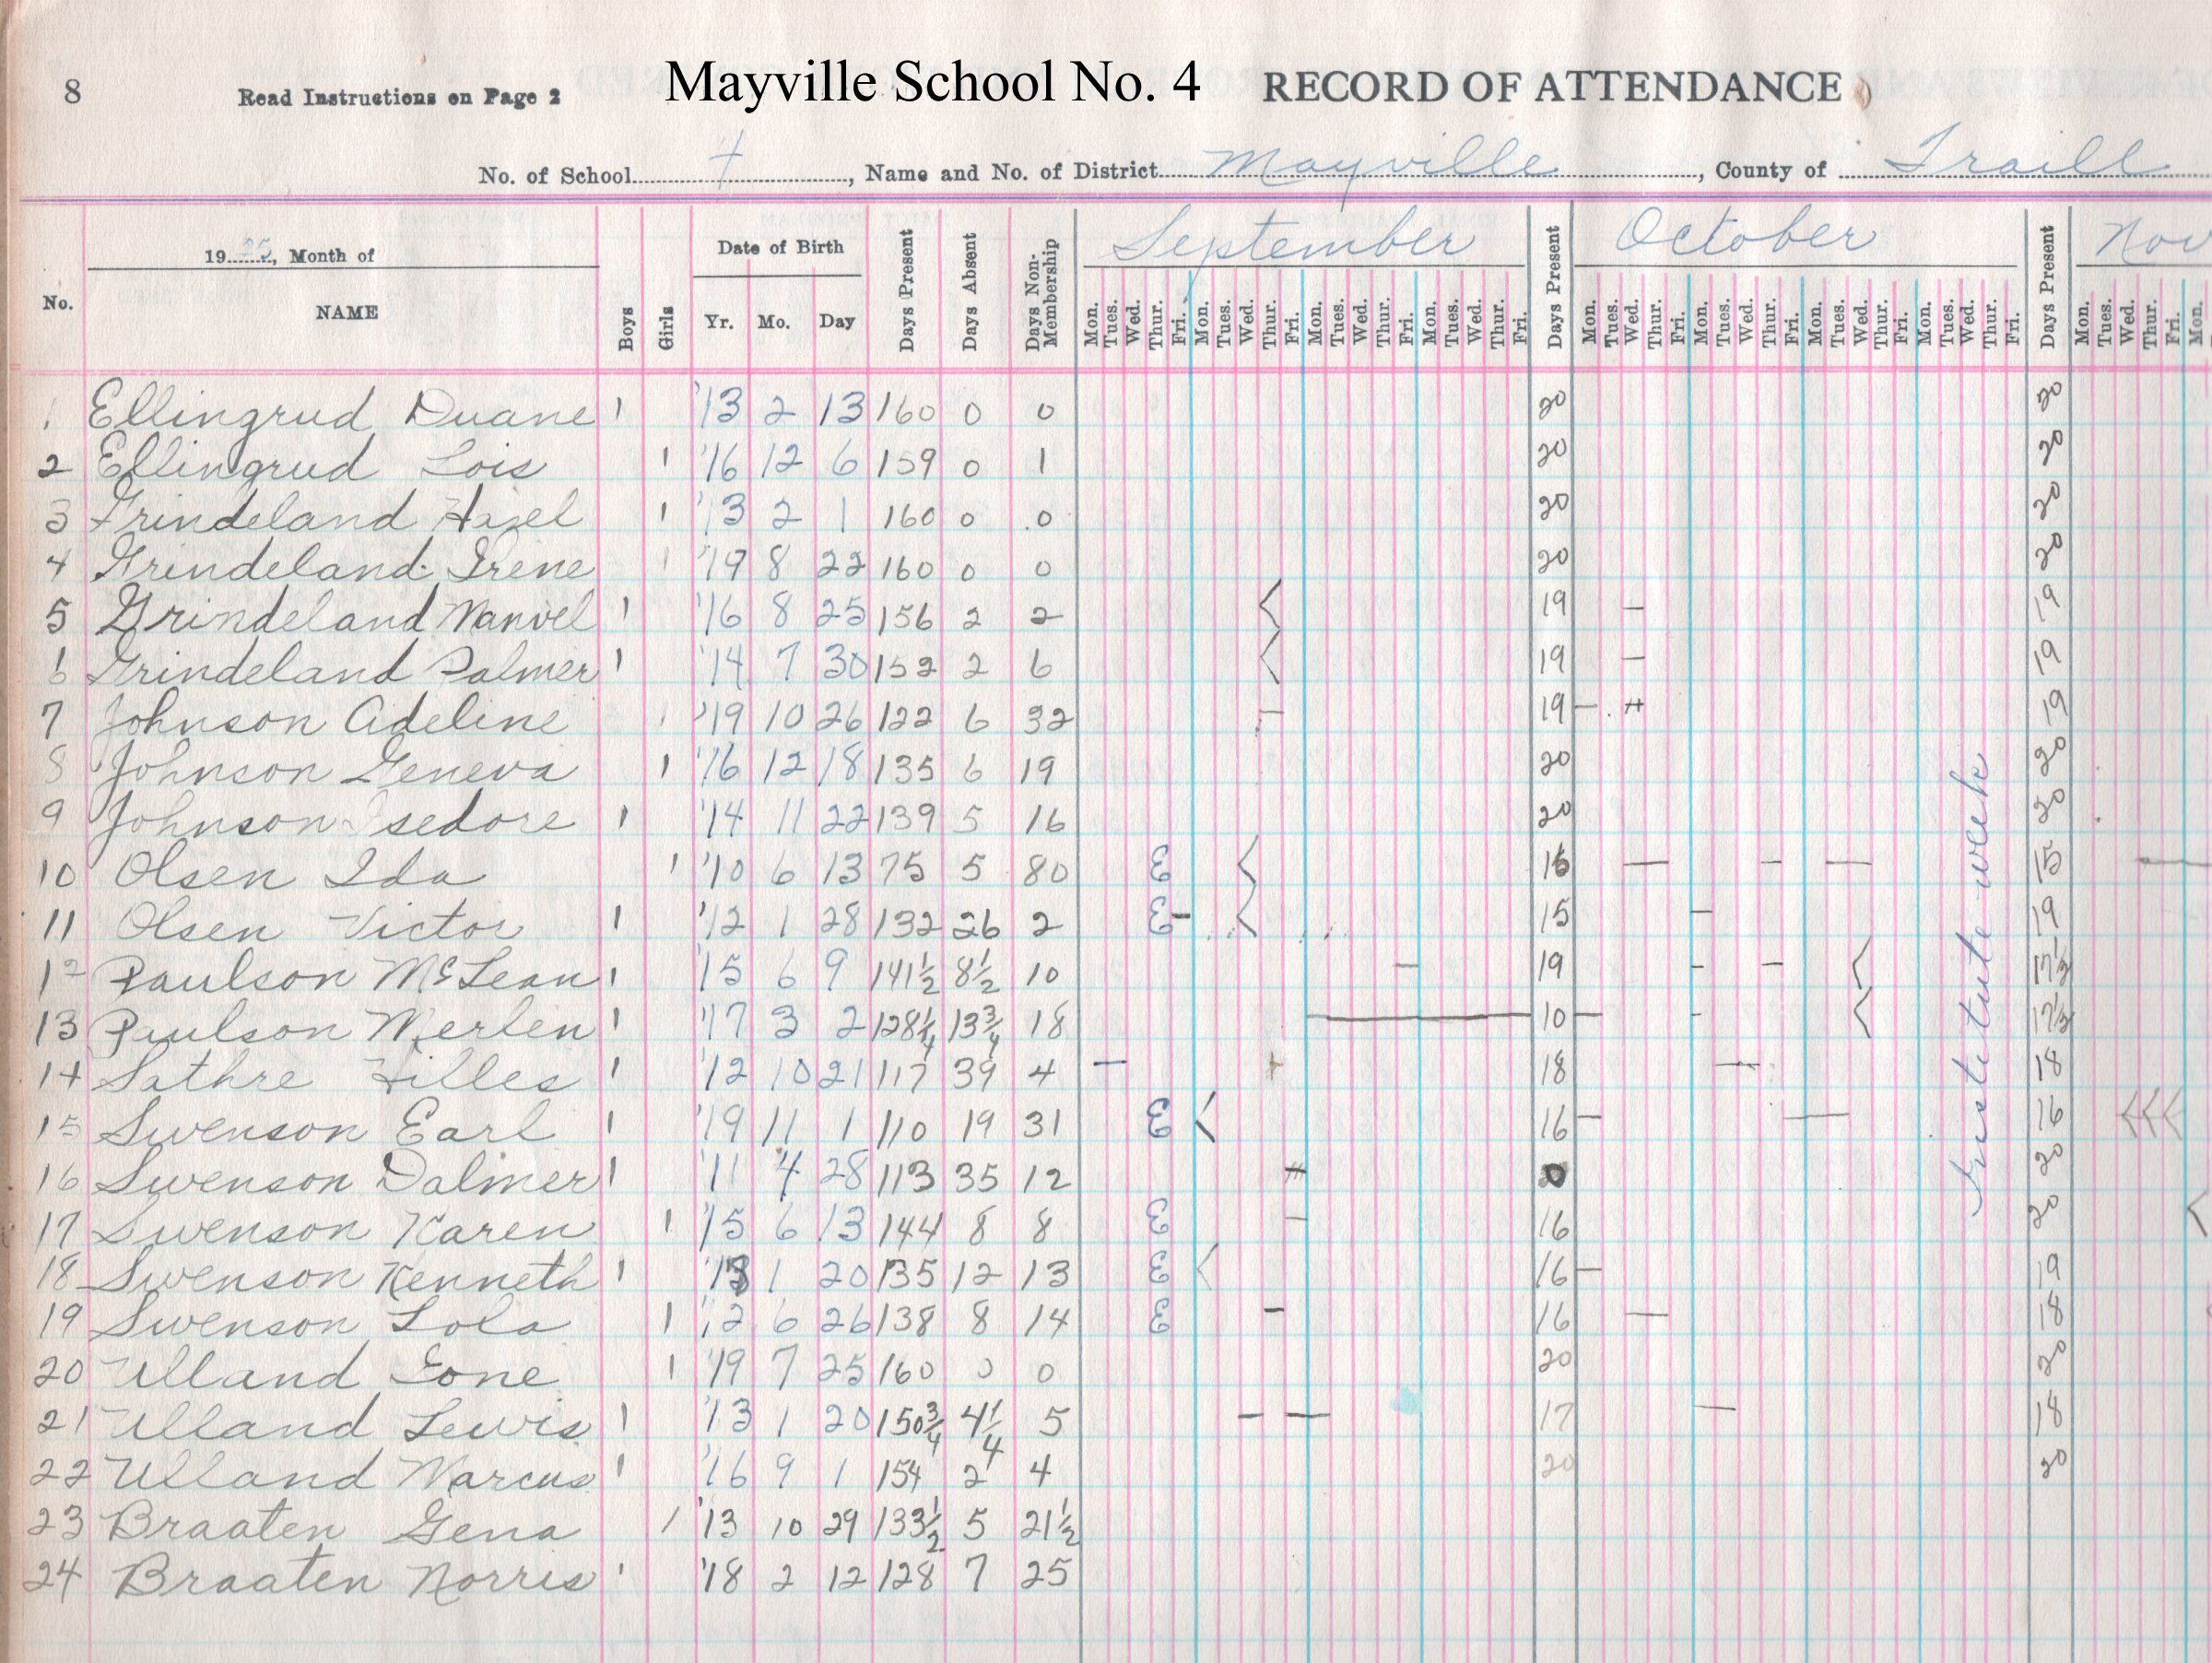 8 Read Instructions on Page 2 Mayville School No. 4 RECORD OF ATTENDANCE
No. of School 4, Name and No. of District Mayville, County of Traill
1925, Month of Date of Birth September October Nov
No. NAME Boys Girls Yr. Mo. Day Days Present Days Absent Days Non-Membership Mon. Tues. Wed. Thur. Fri. Mon. Tues. Wed. Thur. Fri. Mon. Tues. Wed. Thur. Fri. Mon. Tues. Wed. Thur. Fri. Days Present Mon. Tues. Wed. Thur. Fri. Mon. Tues. Wed. Thur. Fri. Mon. Tues. Wed. Thur. Fri. Mon. Tues. Wed. Thur. Fri. Days Present Mon. Tues. Wed. Thur. Fri. Mon.
1 Ellingrud Duane 1 '13 2 13 160 0 0 20 20
2 Ellingrud Lois 1 '16 12 6 159 0 1 20 20
3 Grindeland Hazel 1 '13 2 1 160 0 0 20 20
4 Grindeland Irene 1 '19 8 22 160 0 0 20 20
5 Grindeland Manvel 1 '16 8 25 156 2 2 19 19
6 Grindeland Palmer 1 '14 7 30 152 2 6 19 19
7 Johnson Adeline 1 '19 10 26 122 6 32 19 19
8 Johnson Geneva 1 '16 12 18 135 6 19 20 20
9 Johnson Isedore 1 '14 11 22 139 5 16 20 20
10 Olsen Ida 1 '10 6 13 75 5 80 E 15 15
11 Olsen Victor 1 '12 1 28 132 26 2 E 15 19
12 Paulson McLean 1 '15 6 9 141½ 8½ 10 19 17½
13 Paulson Merlen 1 '17 3 2 128¼ 13¾ 18 10 17½
14 Sathre Filles 1 '12 10 21 117 39 4 18 18
15 Swenson Earl 1 '19 11 1 110 19 31 E 16 16
16 Swenson Dalmer 1 '11 4 28 113 35 12 20 20
17 Swenson Karen 1 '15 6 13 144 8 8 E 16 20
18 Swenson Kenneth 1 '13 1 20 135 12 13 E 16 19
19 Swenson Lola 1 '12 6 26 138 8 14 E 16 18
20 Ulland Ione 1 '19 7 25 160 0 0 20 20
21 Ulland Lewis 1 '13 1 20 150¾ 4¼ 5 17 18
22 Ulland Marcus 1 '16 9 1 154 2 4 20 20
23 Braaten Gena 1 '13 10 29 133½ 5 21½
24 Braaten Norris 1 '18 2 12 128 7 25
Institute week